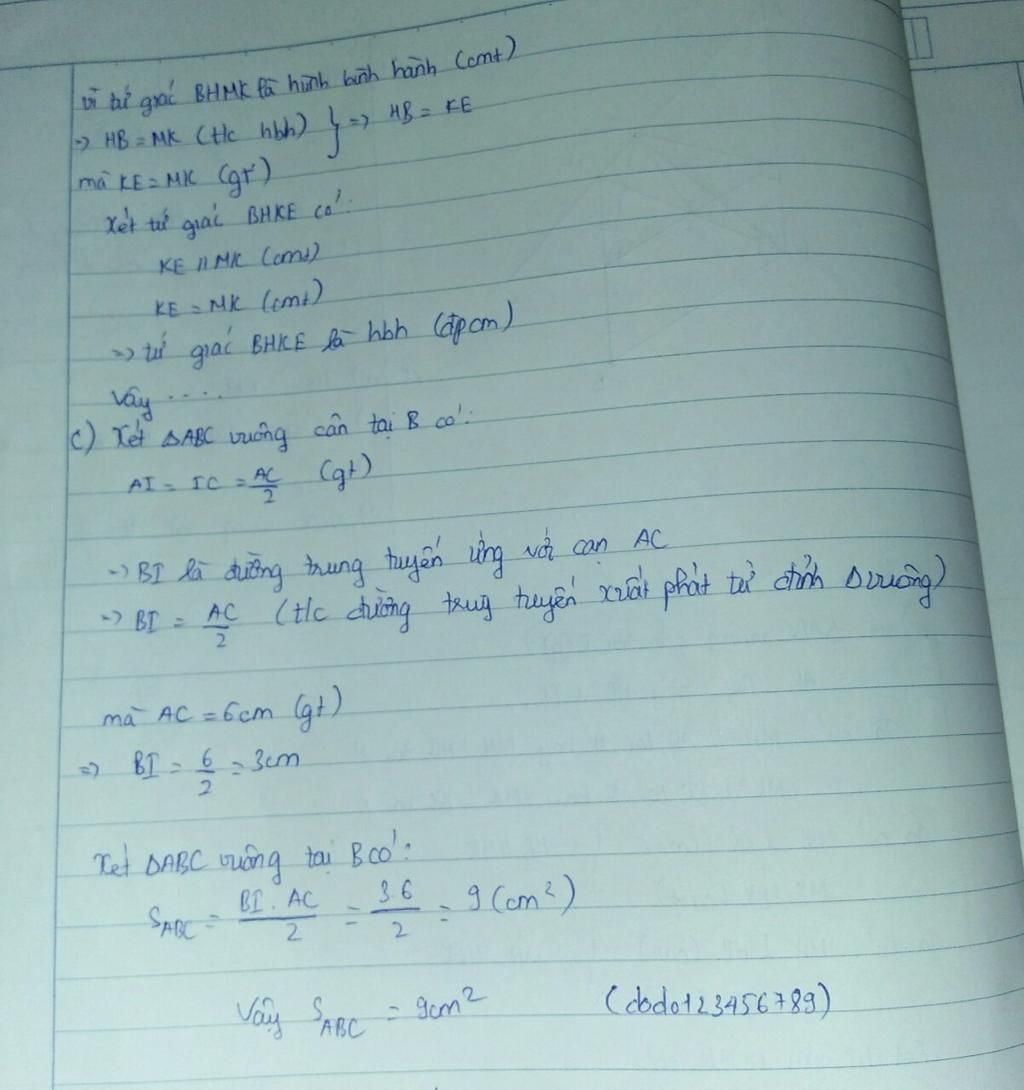 Vì tứ giác BHMK là hình bình hành (cmt)
=> HB = MK (t/c hbh) } => HB = KE
mà KE = MK (gt)
Xét tứ giác BHKE có:
KE // MK (cmt)
KE = MK (cmt)
=> tứ giác BHKE là hbh (đpcm)
Vậy ....
c) Xét ΔABC vuông cân tại B có:
AI = IC = AC/2 (gt)
=> BI là đường trung tuyến ứng với cạn AC
=> BI = AC/2 (t/c đường trug tuyến xuất phát từ đỉnh Δ vuông)
mà AC = 6cm (gt)
=> BI = 6/2 = 3cm
Xét ΔABC vuông tại B có:
S_ABC = BI . AC/2 = 3.6/2 = 9 (cm²)
Vậy S_ABC = 9cm² (dbdo123456789)